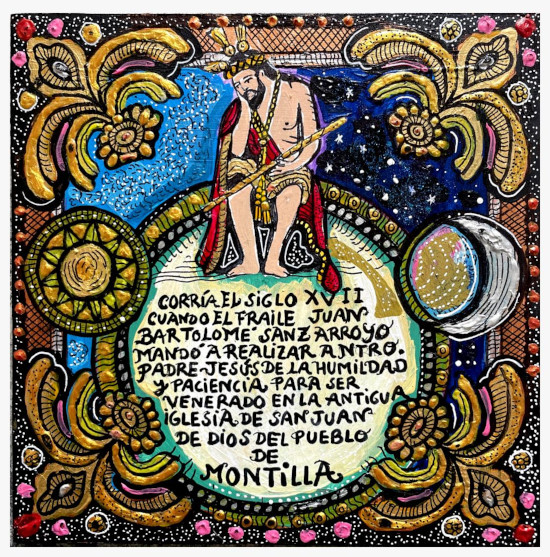 CORRÍA EL SIGLO XVII
CUANDO EL FRAILE JUAN
BARTOLOMÉ SANZ ARROYO
MANDÓ A REALIZAR A NTRO.
PADRE JESÚS DE LA HUMILDAD
Y PACIENCIA, PARA SER
VENERADO EN LA ANTIGUA
IGLESIA DE SAN JUAN
DE DIOS DEL PUEBLO
DE
MONTILLA